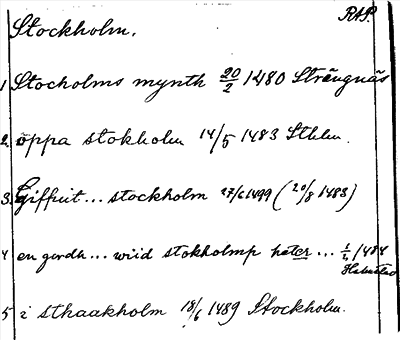 RAP.
Stockholm.
1 Stocholms mynth 20/2 1480 Strängnäs
2. öppa stokholm 14/5 1483 Sthlm.
3. Giffuit... stockholm 27/6 1499 (20/8 1483)
4 en gardh... wiid stokholmp heter... 1/2 1484
Halmstad
5 i sthaakholm 18/6 1489 Stockholm.